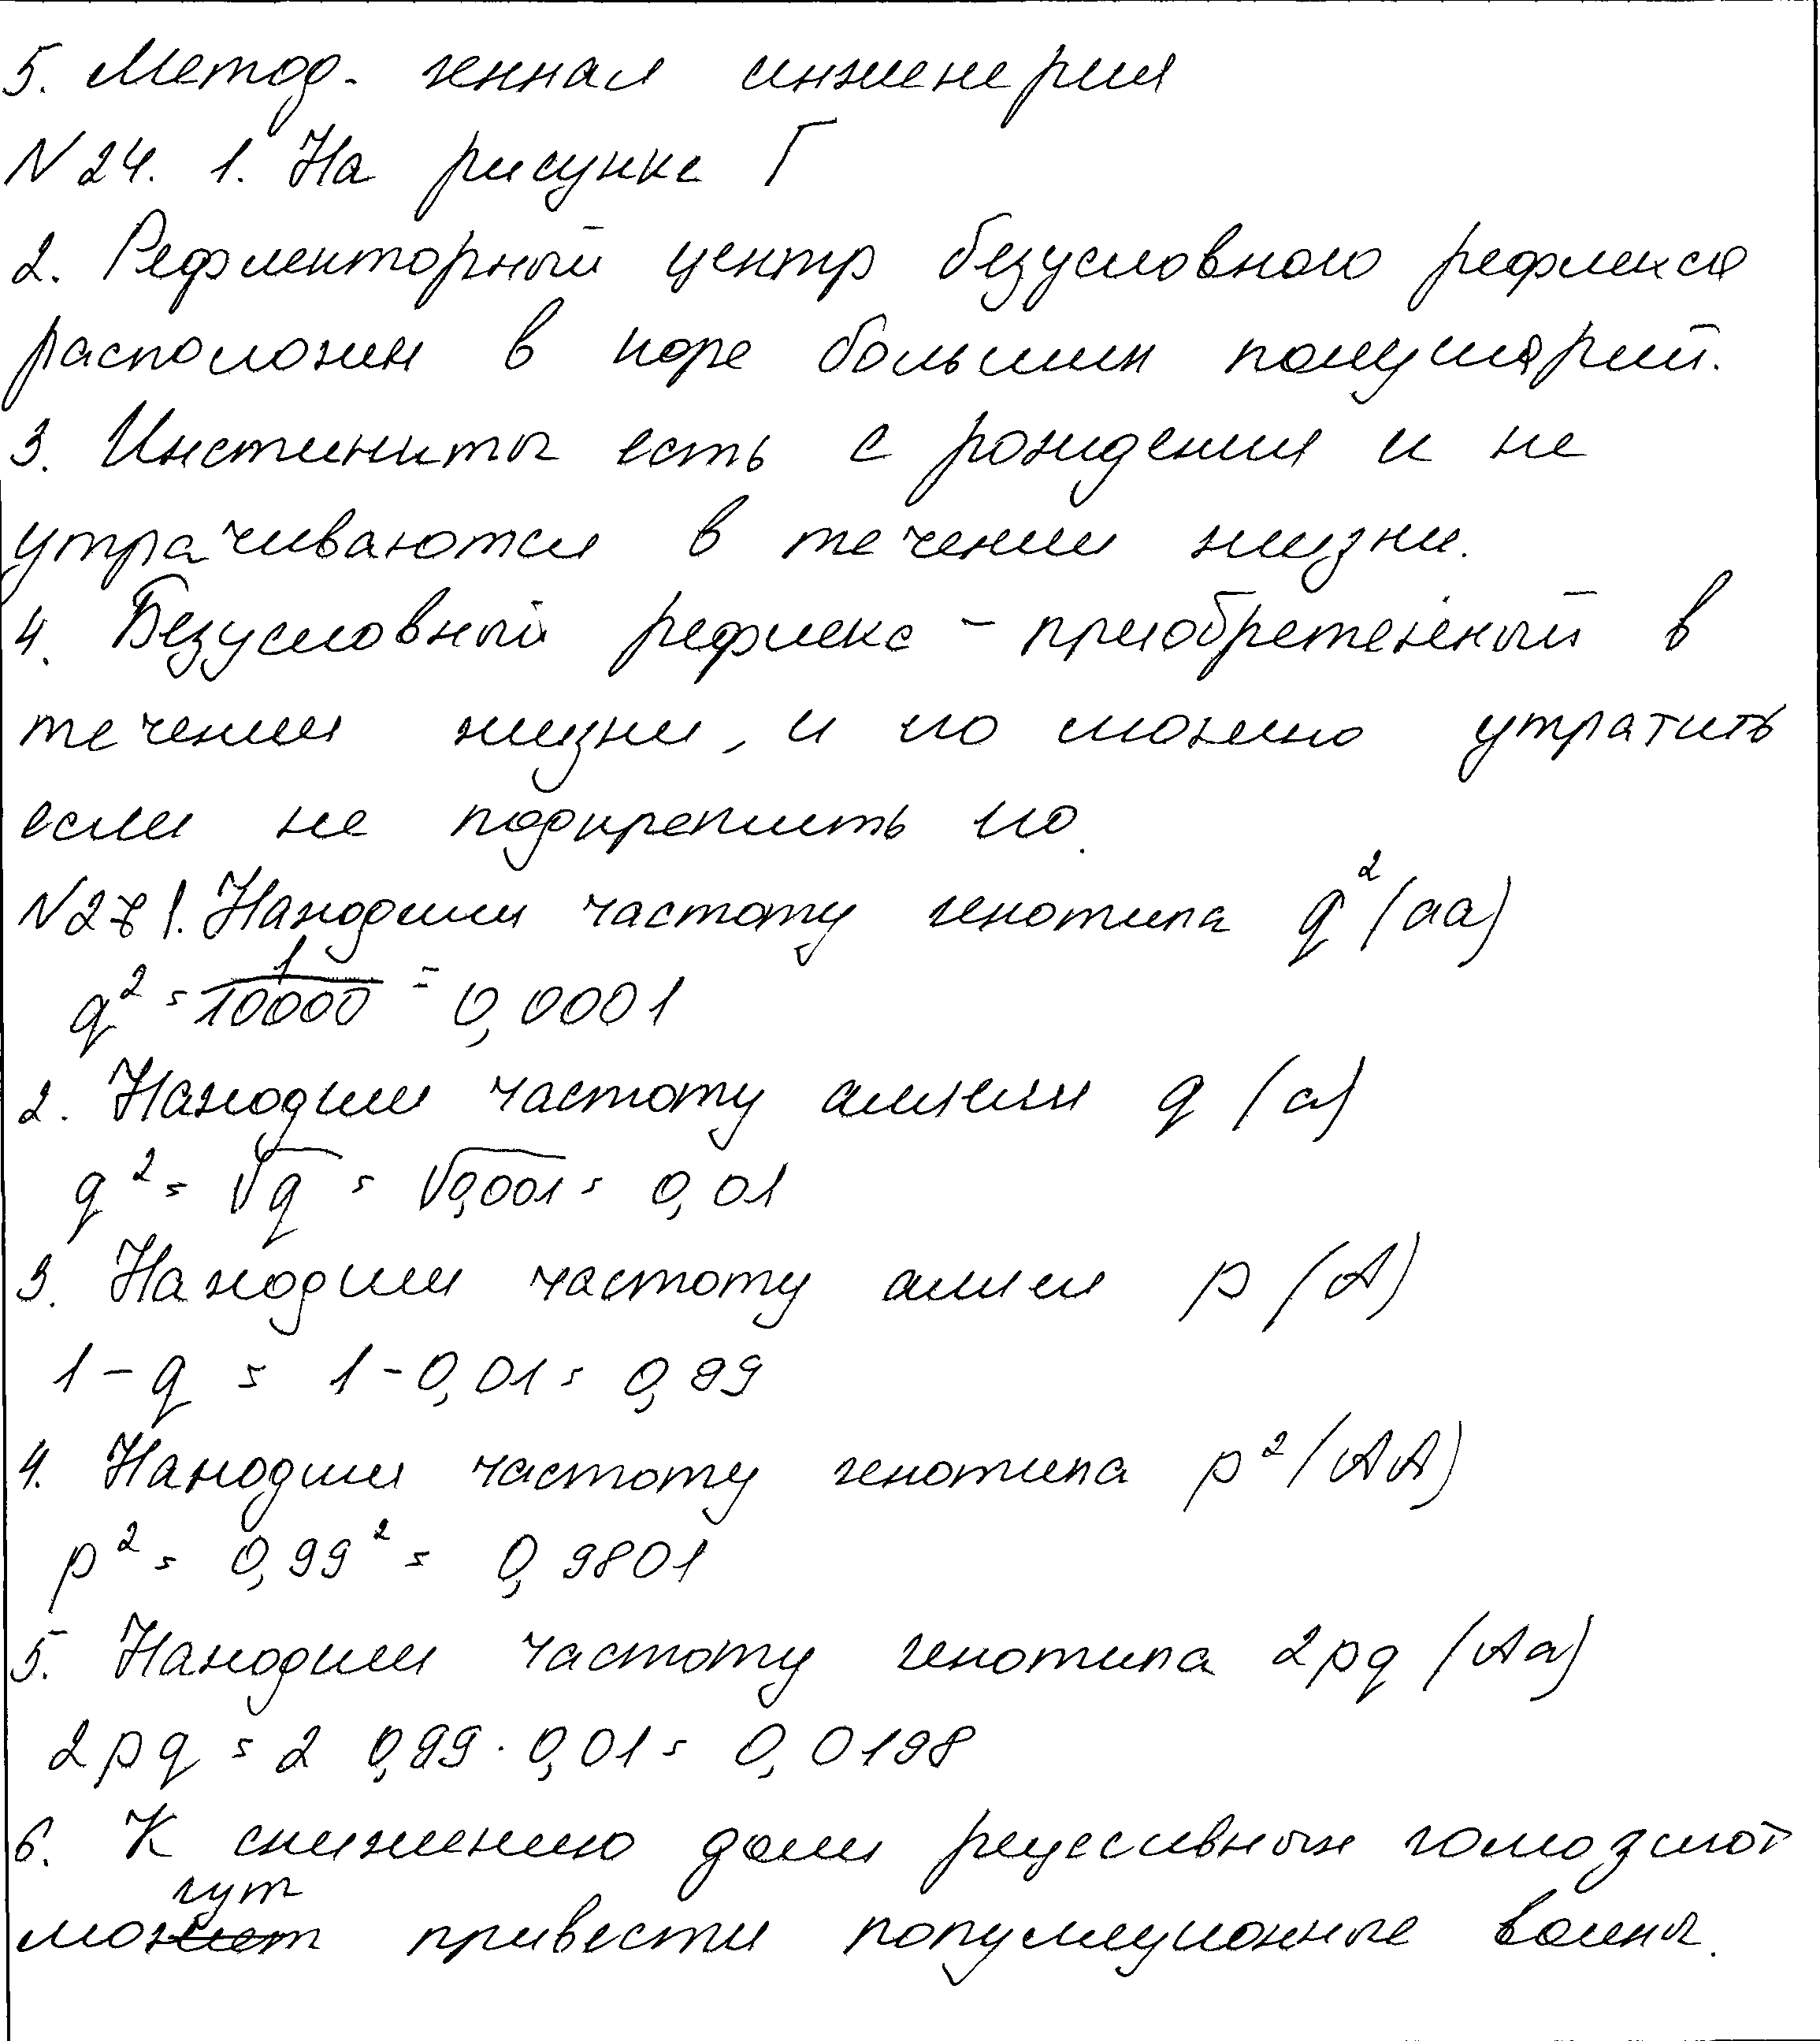 5. Метод - генная инженерия
N 24. 1. На рисунке Г
2. Рефлекторный центр безусловного рефлекса
расположен в коре больших полушарий.
3. Инстинкты есть с рождения и не
утрачиваются в течении жизни.
4. Безусловный рефлекс - приобретенный в
течении жизни, и его можно утратить
если не подкрепить его.
N 28 1. Находим частоту генотипа q² (aa)
q² = 1/10000 = 0,0001
2. Находим частоту аллели q (a)
q² = √q = √0,001 = 0,01
3. Находим частоту аллели p (A)
1 - q = 1 - 0,01 = 0,99
4. Находим частоту генотипа p² (AA)
p² = 0,99² = 0,9801
5. Находим частоту генотипа 2pq (Aa)
2pq = 2 0,99 · 0,01 = 0,0198
6. К снижению доли рецессивных гомозигот
могут привести популяционные волны.